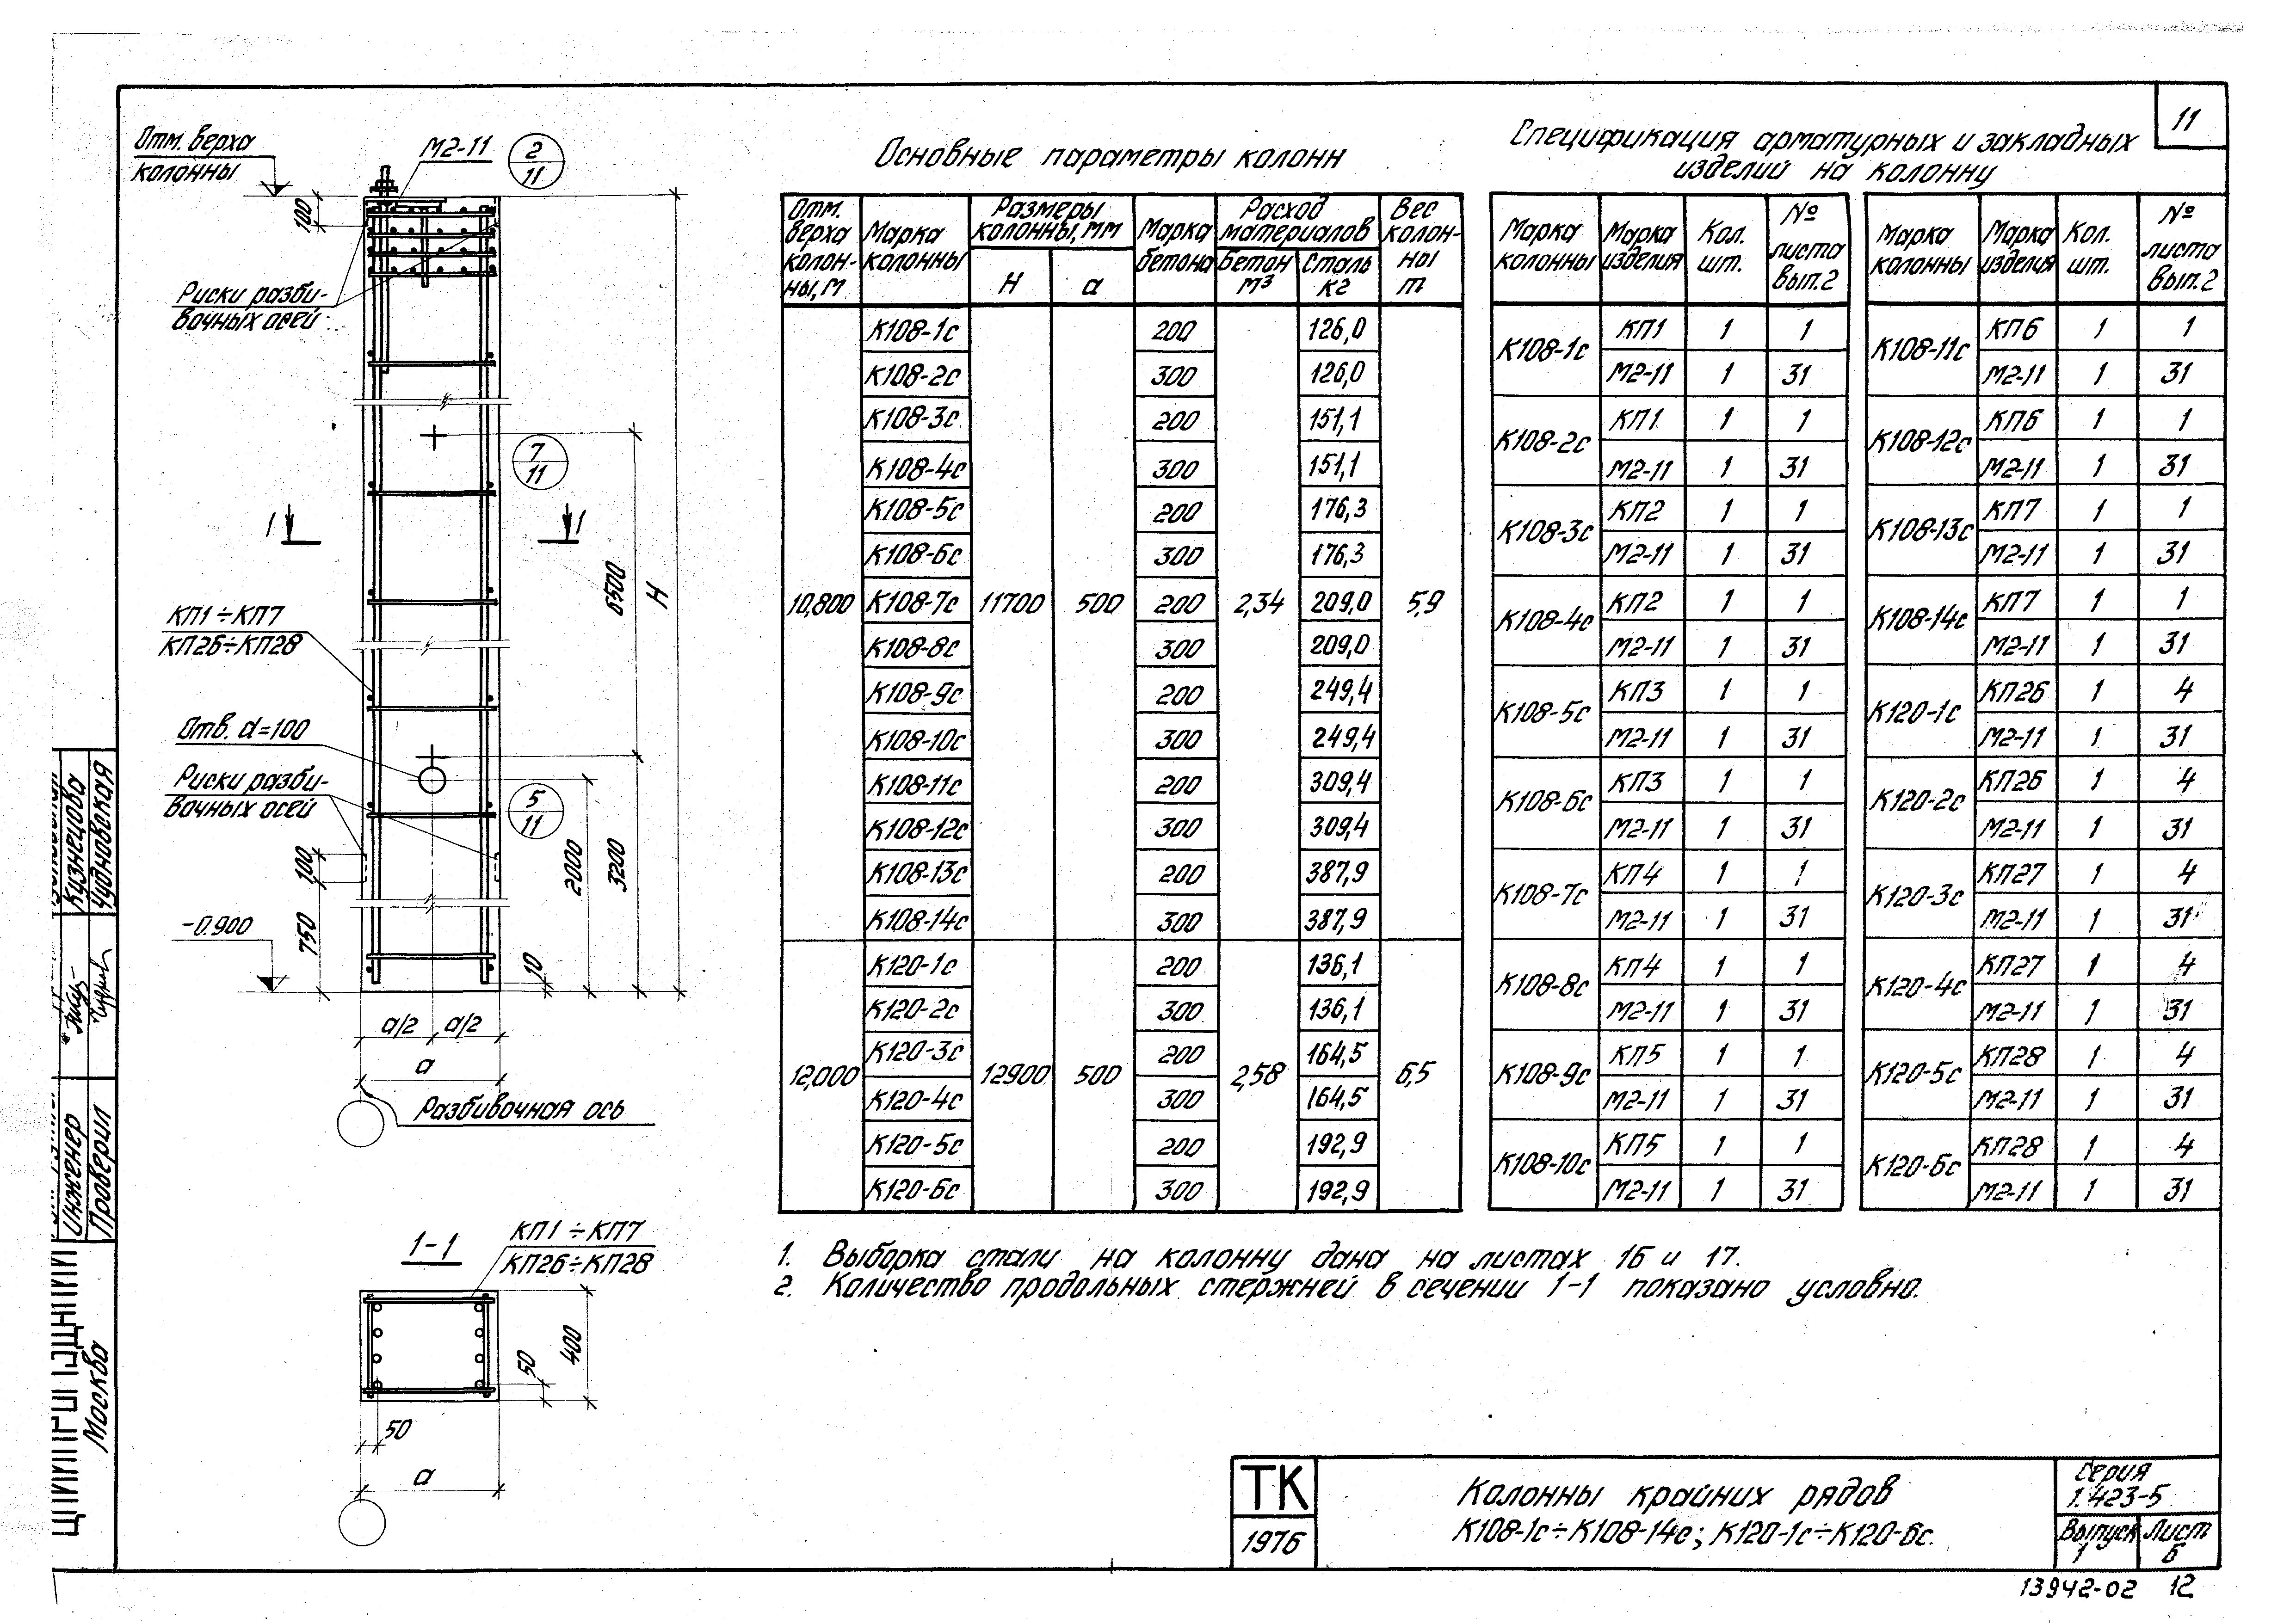 11
Отм. верха
колонны
М2-11
2
11
100
Риски разби-
вочных осей
7
11
1
1
6500
Н
КП1÷КП7
КП26÷КП28
Отв. d=100
Риски разби-
вочных осей
5
11
100
2000
3200
-0.900
750
10
а/2 а/2
а
Разбивочная ось
1-1
КП1÷КП7
КП26÷КП28
50
400
50
а
Основные параметры колонн
Отм. верха колон- ны, м | Марка колонны | Размеры колонны, мм | Марка бетона | Расход материалов | Вес колон- ны т
Н | а | Бетон м³ | Сталь кг
10,800 | 11700 | 500 | 2,34 | 5,9
К108-1с 200 126,0
К108-2с 300 126,0
К108-3с 200 151,1
К108-4с 300 151,1
К108-5с 200 176,3
К108-6с 300 176,3
К108-7с 200 209,0
К108-8с 300 209,0
К108-9с 200 249,4
К108-10с 300 249,4
К108-11с 200 309,4
К108-12с 300 309,4
К108-13с 200 387,9
К108-14с 300 387,9
12,000 | 12900 | 500 | 2,58 | 6,5
К120-1с 200 136,1
К120-2с 300 136,1
К120-3с 200 164,5
К120-4с 300 164,5
К120-5с 200 192,9
К120-6с 300 192,9
Спецификация арматурных и закладных
изделий на колонну
Марка колонны | Марка изделия | Кол. шт. | № листа вып. 2
К108-1с КП1 1 1
М2-11 1 31
К108-2с КП1 1 1
М2-11 1 31
К108-3с КП2 1 1
М2-11 1 31
К108-4с КП2 1 1
М2-11 1 31
К108-5с КП3 1 1
М2-11 1 31
К108-6с КП3 1 1
М2-11 1 31
К108-7с КП4 1 1
М2-11 1 31
К108-8с КП4 1 1
М2-11 1 31
К108-9с КП5 1 1
М2-11 1 31
К108-10с КП5 1 1
М2-11 1 31
Марка колонны | Марка изделия | Кол. шт. | № листа вып. 2
К108-11с КП6 1 1
М2-11 1 31
К108-12с КП6 1 1
М2-11 1 31
К108-13с КП7 1 1
М2-11 1 31
К108-14с КП7 1 1
М2-11 1 31
К120-1с КП26 1 4
М2-11 1 31
К120-2с КП26 1 4
М2-11 1 31
К120-3с КП27 1 4
М2-11 1 31
К120-4с КП27 1 4
М2-11 1 31
К120-5с КП28 1 4
М2-11 1 31
К120-6с КП28 1 4
М2-11 1 31
1. Выборка стали на колонну дана на листах 16 и 17.
2. Количество продольных стержней в сечении 1-1 показано условно.
Кузнецова
Чудновская
Инженер
Проверил
Москва
ТК
1976
Колонны крайних рядов
К108-1с÷К108-14с; К120-1с÷К120-6с.
Серия
1.423-5
Выпуск
1
Лист
6
13942-02 12